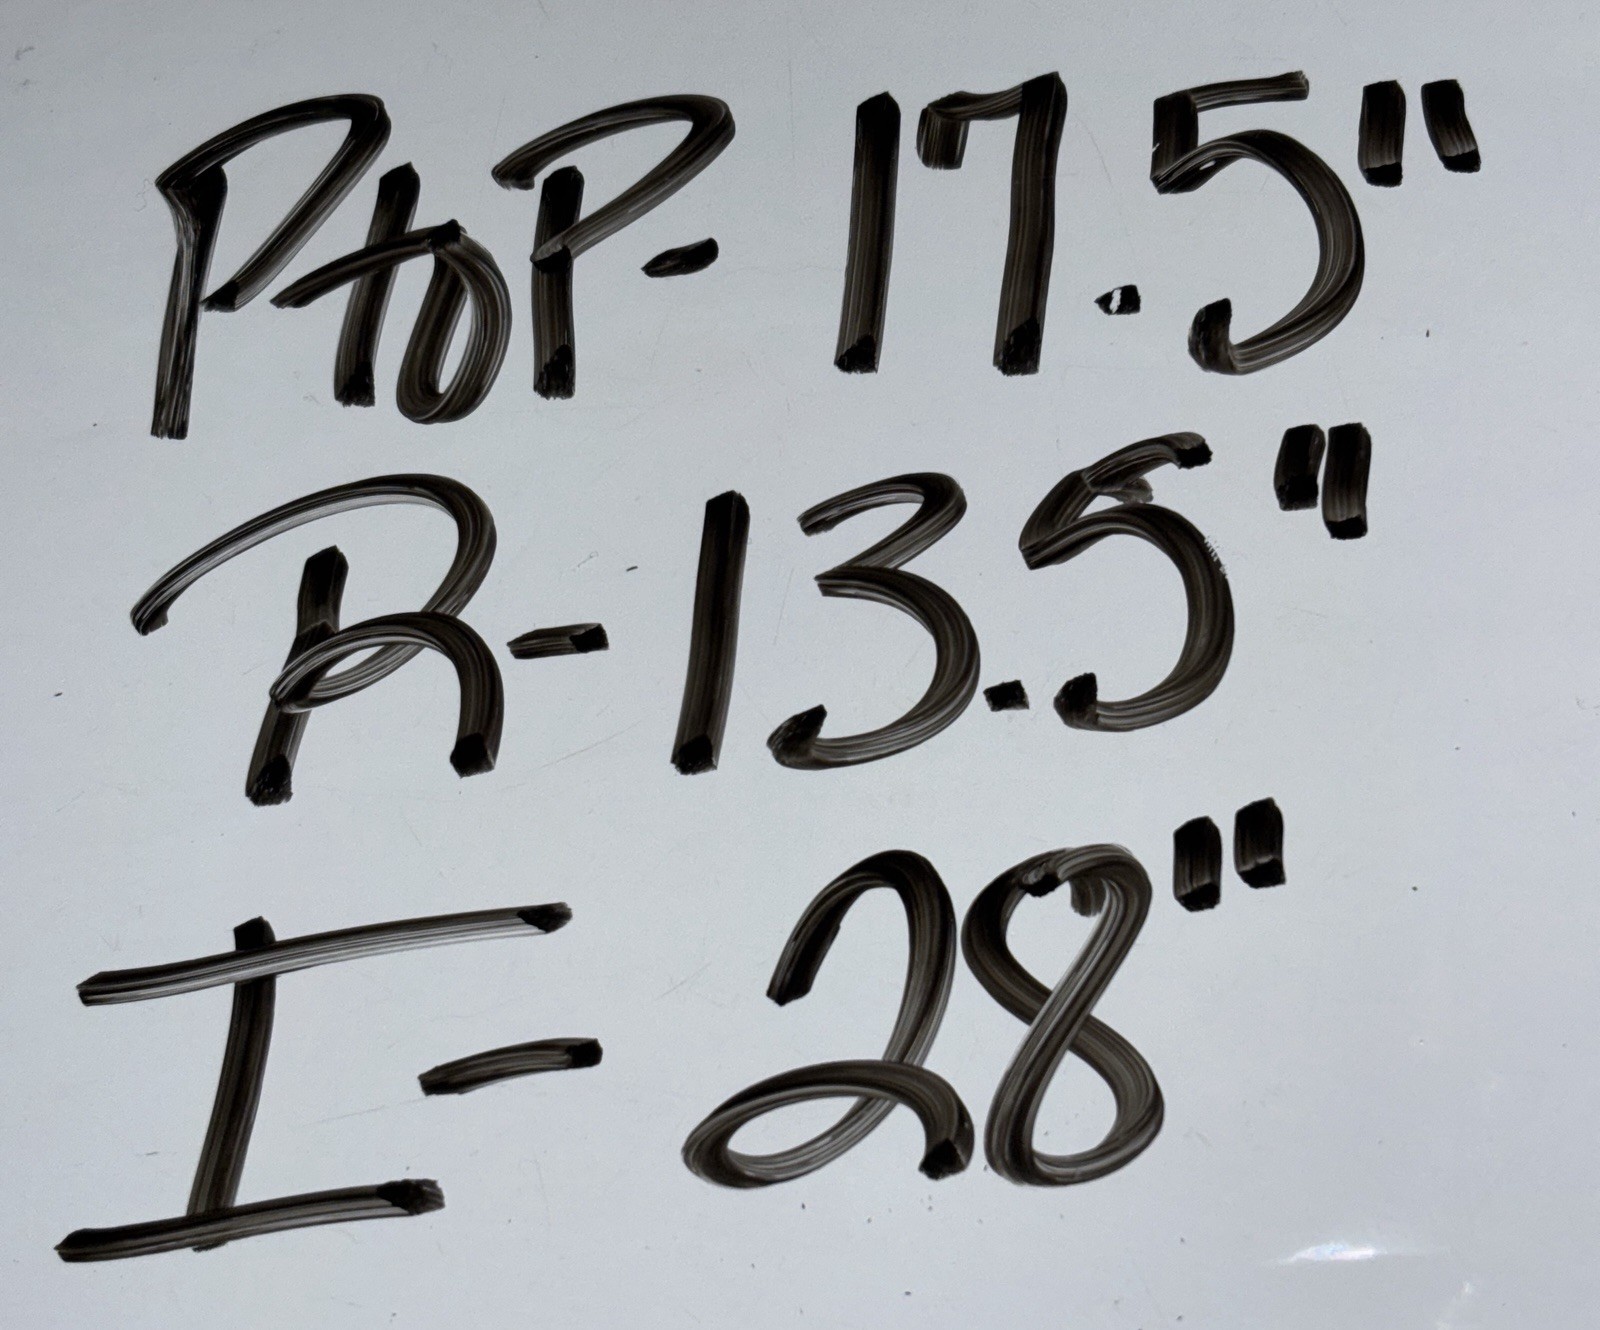 PtoP- 17.5"
R- 13.5"
I- 28"